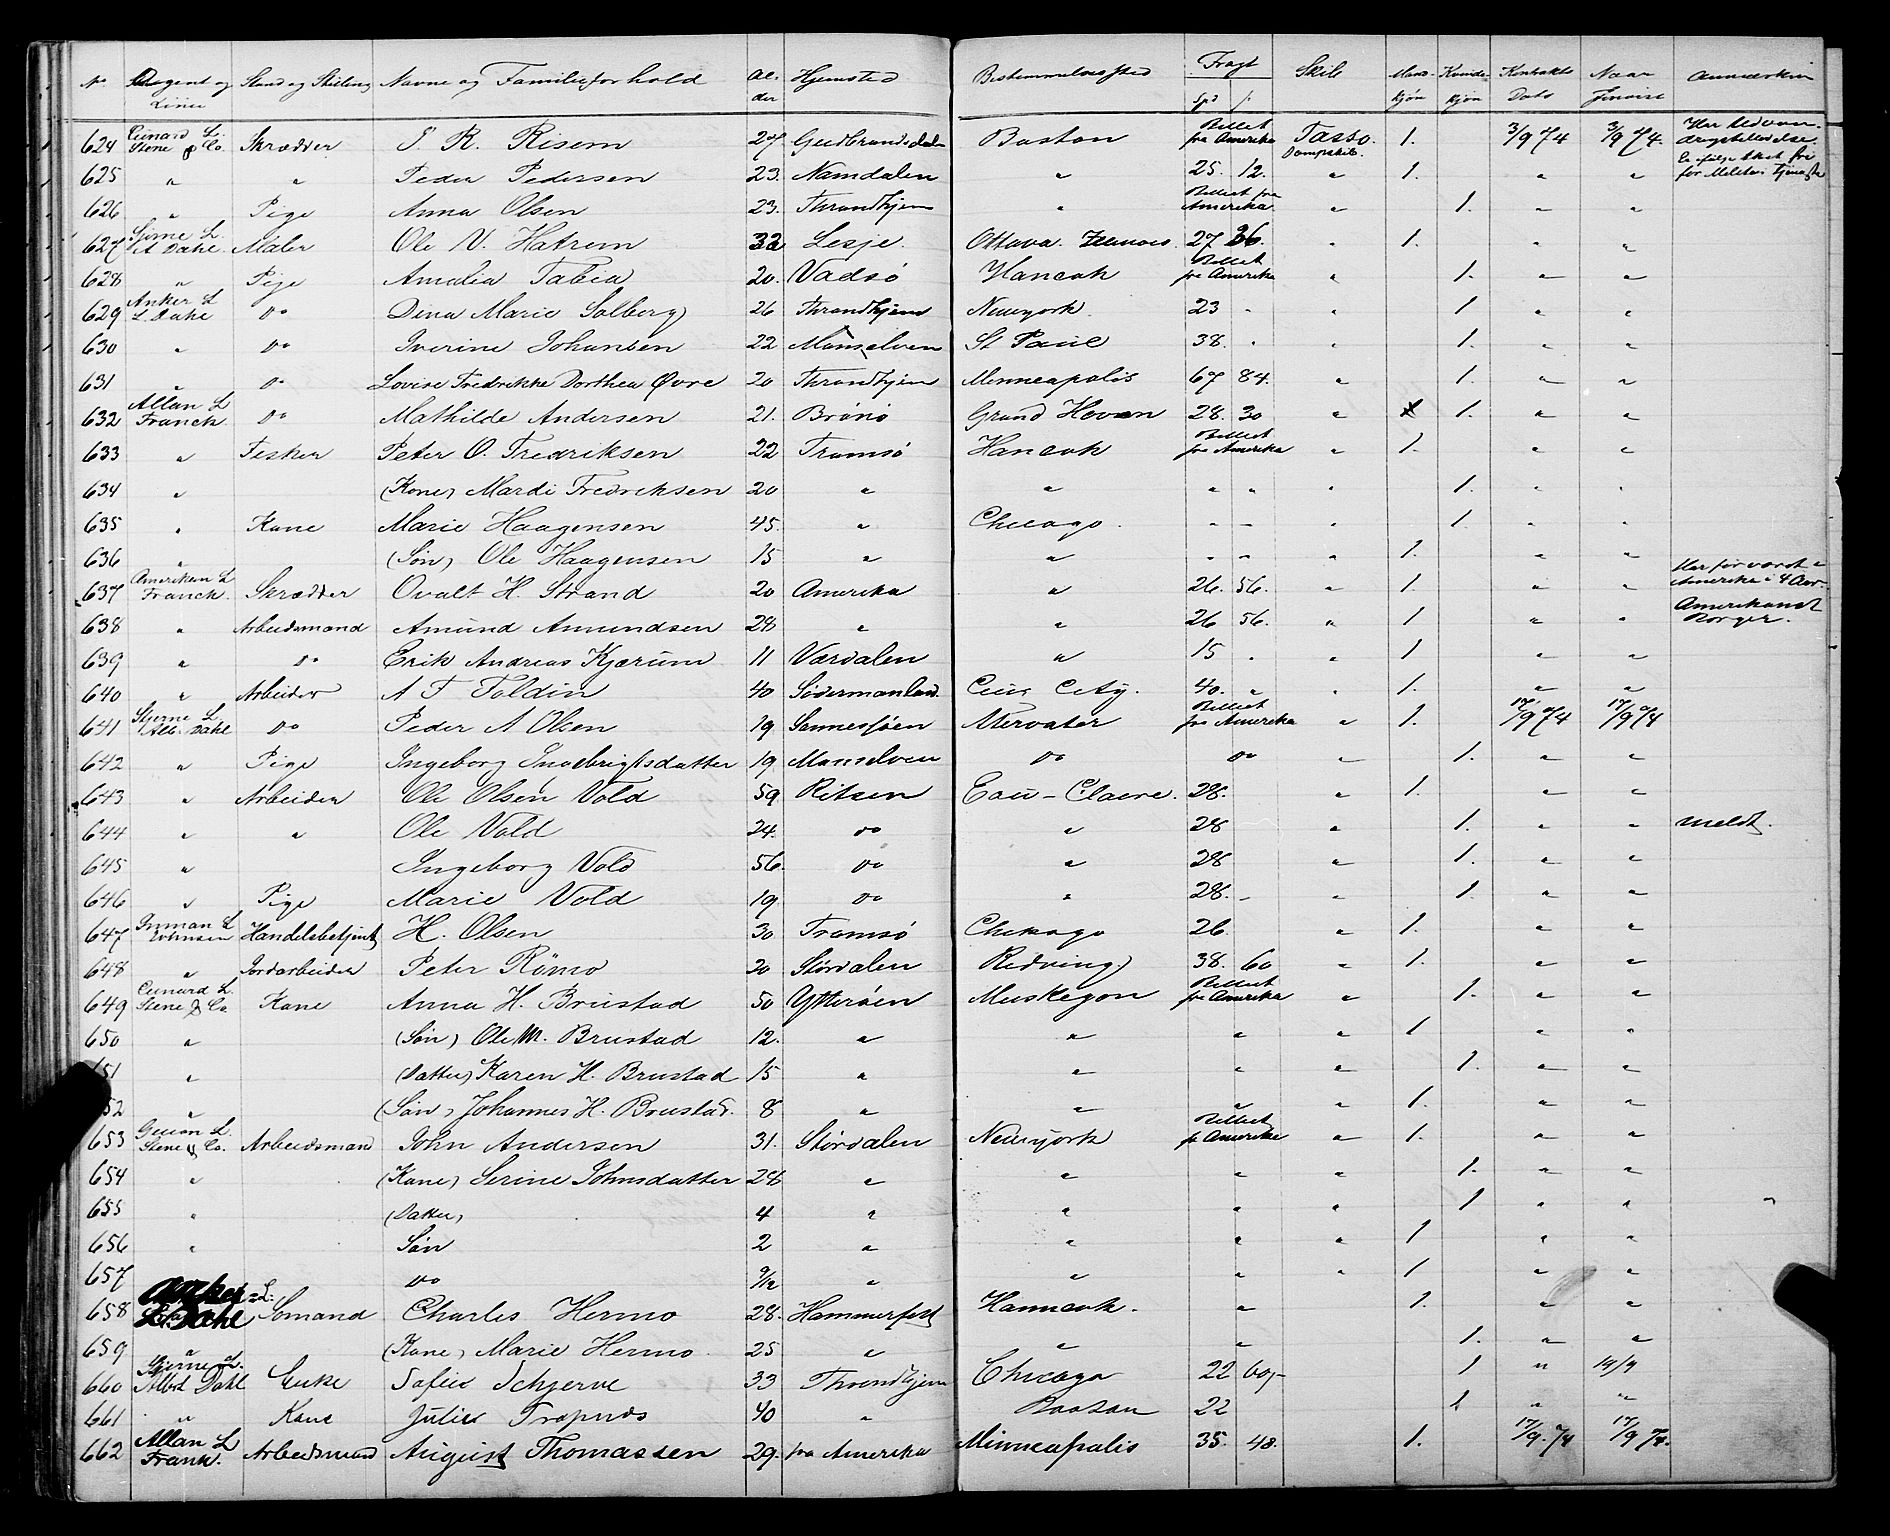 No Agent og Linie Stand og Stilling Navne og Familieforhold Alder Hjemsted Bestemmelsessted Fragt Spd ß Skib Mandkjøn Kvindekjøn Kontrakts Dato Naar
624 Cunard L. Stene & Co. Skrædder P. R. Risem 27. Gudbrandsdalen Boston Billet fra Amerika Tasso. Dampskib. 1. 3/9 74 3/9 74.
625 " " Peder Pedersen 23. Namdalen " 25. 12. " 1. " "
626 " Pige Anna Olsen 23. Throndhjem " Billet fra Amerika " 1. " "
627 Stjerne L. Dahl. Maler Ole N. Hatrem 32 Lesje. Ottava. Illinois 27 36. " 1. " "
628 " Pige Amalia Tabia 20. Vadsö Hancok Billet fra Amerika " 1. " "
629 Anker L L. Dahl Do Dina Marie Solberg 26 Throndhjem Newyork. 23 " " 1 " "
630 " Do Iverine Johansen 22 Manselven St Paul 38. " 1. " "
631 " Do Lovise Fredrikke Dorthea Øvre 20 Throndhjem Minneapolis 67 84. " 1. " "
632 Allan L Franck. Do Mathilde Andersen 21. Brönö Grand Haven 28. 30 " 1. " "
633 " Fisker Peter O. Fredriksen 22 Tromsö Hancok Billet fra Amerika " 1. " "
634 " (Kone) Mardi Fredriksen 20 " " " " 1. "
635 " Kone Marie Haagensen 45. " Chicago. " " " 1. " "
636 " (Søn) Ole Haagensen 15 " " " " " 1. " "
637 Amerikan L Franck. Skrædder Ovalt H. Strand 20 Amerika " 26. 56. " 1. " " Har før været i Amerika i 4 Aar.
638 " Arbeidsmand Amund Amundsen 28 " " 26 56. " 1 " " Amerikansk Borger.
639 " Do Erik Andreas Kjærum 11 Værdalen " 15 " " 1 " "
640 " Arbeider A F Foldin 40 Södermanland City. 40. " " 1. " "
641 Stjerne L. Alb. Dahl Do Peder A Olsen 19 Sannesjöen Atervater Billet fra Amerika " 1. 17/9 74 17/9 74
642 " Pige Ingeborg Ingebrigtsdatter 19 Manselven Do Do " 1. " "
643 " Arbeider Ole Olsen Vold 59 Ritsen Eau-Claire. 28. " 1. " "
644 " " Ole Vold 24. Do " 28 " 1. " " meldt.
645 " Ingeborg Vold 56. Do " 28 " 1. " "
646 " Pige Marie Vold 19. Do " 28. " " 1. " "
647 Inman L Johnsen Handelsbetjent H. Olsen 30 Tromsö Chicago 26. " 1. " "
648 " Jordarbeider Peter Römo 20 Stördalen Redwing 38. 60 " 1. " "
649 Cunard L. Stene & Co Kone Anna H. Brustad 50 Ytteröen Muskegon Billet fr Amerika " 1. " "
650 " (Søn) Ole M. Brustad 12. " " " " 1 " "
651 " (Datter) Karen H. Brustad 15 " " " " 1. " "
652 " (Søn) Johannes H. Brustad. 8 " " " " 1. " "
653 Guion L. Stene & Co. Arbeidsmand John Andersen 31. Stördalen Newyork Billet fr Amerika " 1. " "
654 " (Kone) Serine Johnsdatter 28 " " " " 1. " "
655 " (Datter) 4 " " " " 1 " "
656 " Søn 2 " " " " 1 " "
657 Do 9/12 " " " " 1. " "
658 Anker L. L. Dahl Sömand Charles Hermo 28. Hammerfest Hanncok. " 1. " "
659 " (Kone) Marie Hermo. 25 " " " 1. " "
660 Stjerne L. Albt Dahl Enke Sofie Schjerve 33 Throndhjem Chicago 22 60,- 1 " 19/9
661 " Kone Julie 40 " Boston 22 1 " "
662 Allan L Frank. Arbeidsmand August Thomassen 29. fra Amerika Minneapolis 35. 48. 1. 17/9. 74 17/9 74.